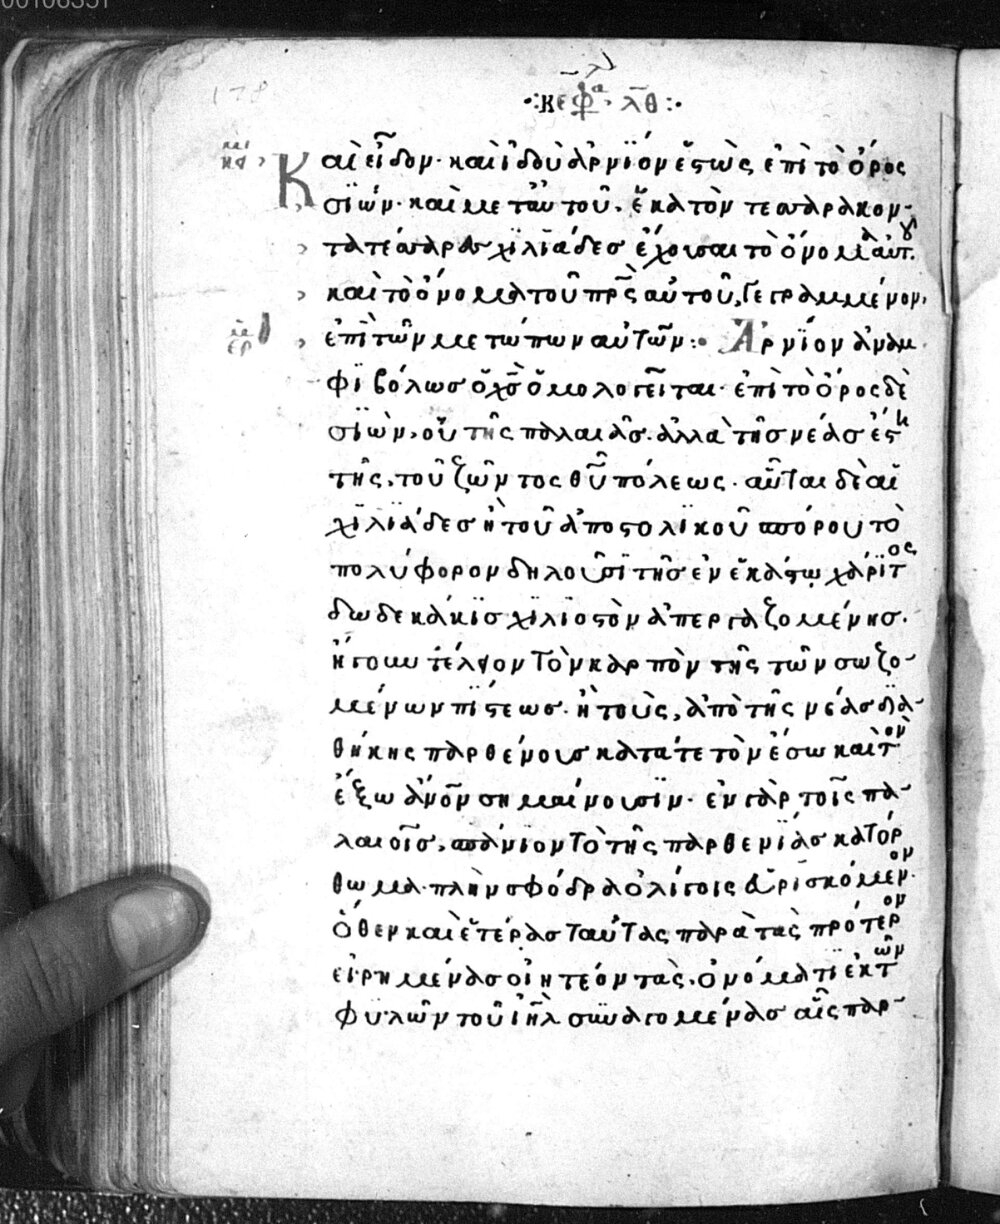 00106351
178
·:κεφα λθ:·
Καὶ εἶδον· καὶ ἰδοὺ ἀρνίον ἑστὼς ἐπὶ τὸ ὄρος
σϊών· καὶ μετ' αὐτοῦ, ἑκατὸν τεσσαρακον-
τατέσσαρες χϊλϊάδεσ ἔχουσαι τὸ ὄνομα αὐτοῦ
καὶ τὸ ὄνομα τοῦ πρς αὐτοῦ, γεγραμμένον,
ἐπὶ τῶν μετώπων αὐτῶν:· Ἀρνϊον ἀναμ
φϊβόλωσ ὁ χς ὁμολογεῖται· ἐπὶ τὸ ὄρος δὲ
σϊὼν, οὐ τῆς παλαιᾶσ. ἀλλὰ τῆσ νέασ ἐκ
τῆς, τοῦ ζῶντος θυ πόλεως· αὗται δὲ αἱ
χϊλϊάδεσ ἢ τοῦ ἀποστολϊκοῦ σπόρου τὸ
πολύφορον δηλοῦσϊ τῆσ ἐν ἑκάστω χάρϊτος
δωδεκάκϊσ χϊλϊοστὸν ἀπεργαζομένησ.
ἤγουν τέλειον τὸν καρπὸν τῆς τῶν σωζο-
μένων πϊστεωσ· ἢ τοὺς, ἀπὸ τῆς νέασ δϊα-
θήκης παρθένουσ κατά τε τὸν ἔσω καὶ τὸν
ἔξω ἀνον σημαίνουσϊν· ἐν γὰρ τοῖς πα-
λαιοῖσ, σπάνϊον τὸ τῆς παρθενϊασ κατόρ
θωμα· πλὴν σφόδρα ὀλίγοις εὑρϊσκόμενον·
ὅθεν καὶ ἑτέρασ ταύτας παρὰ τὰς πρότερον
εἰρημένασ οἰητέον τὰς, ὀνόματϊ ἐκ τῶν
φϋλῶν τοῦ ἰηλ συναγομένασ αἷς παρ-